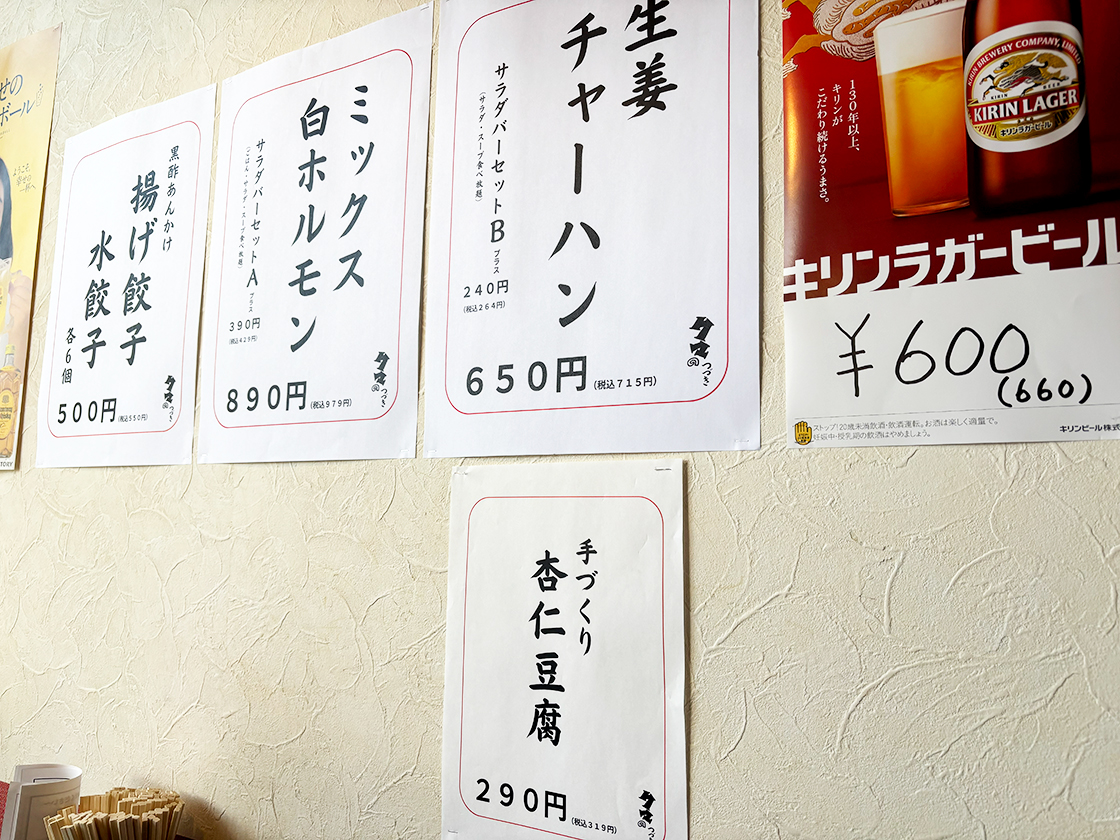 せの
ボール
ようこそ、
幸せの
一杯へ
黒酢あんかけ
揚げ餃子
水餃子
各6個
500円(税込550円)
つづき
ミックス
白ホルモン
サラダバーセットA プラス
(ごはん・サラダ・スープ食べ放題)
390円
(税込429円)
890円(税込979円)
つづき
生姜
チャーハン
サラダバーセットB プラス
(サラダ・スープ食べ放題)
240円
(税込264円)
650円(税込715円)
つづき
130年以上、
キリンが
こだわり続けるうまさ。
KIRIN BREWERY COMPANY, LIMITED
KIRIN BEER
KIRIN LAGER
キリンラガービール
キリンラガービール
¥600
(660)
ストップ!20歳未満飲酒・飲酒運転。お酒は楽しく適量で。
妊娠中・授乳期の飲酒はやめましょう。
キリンビール株式
手づくり
杏仁豆腐
290円(税込319円)
つづき